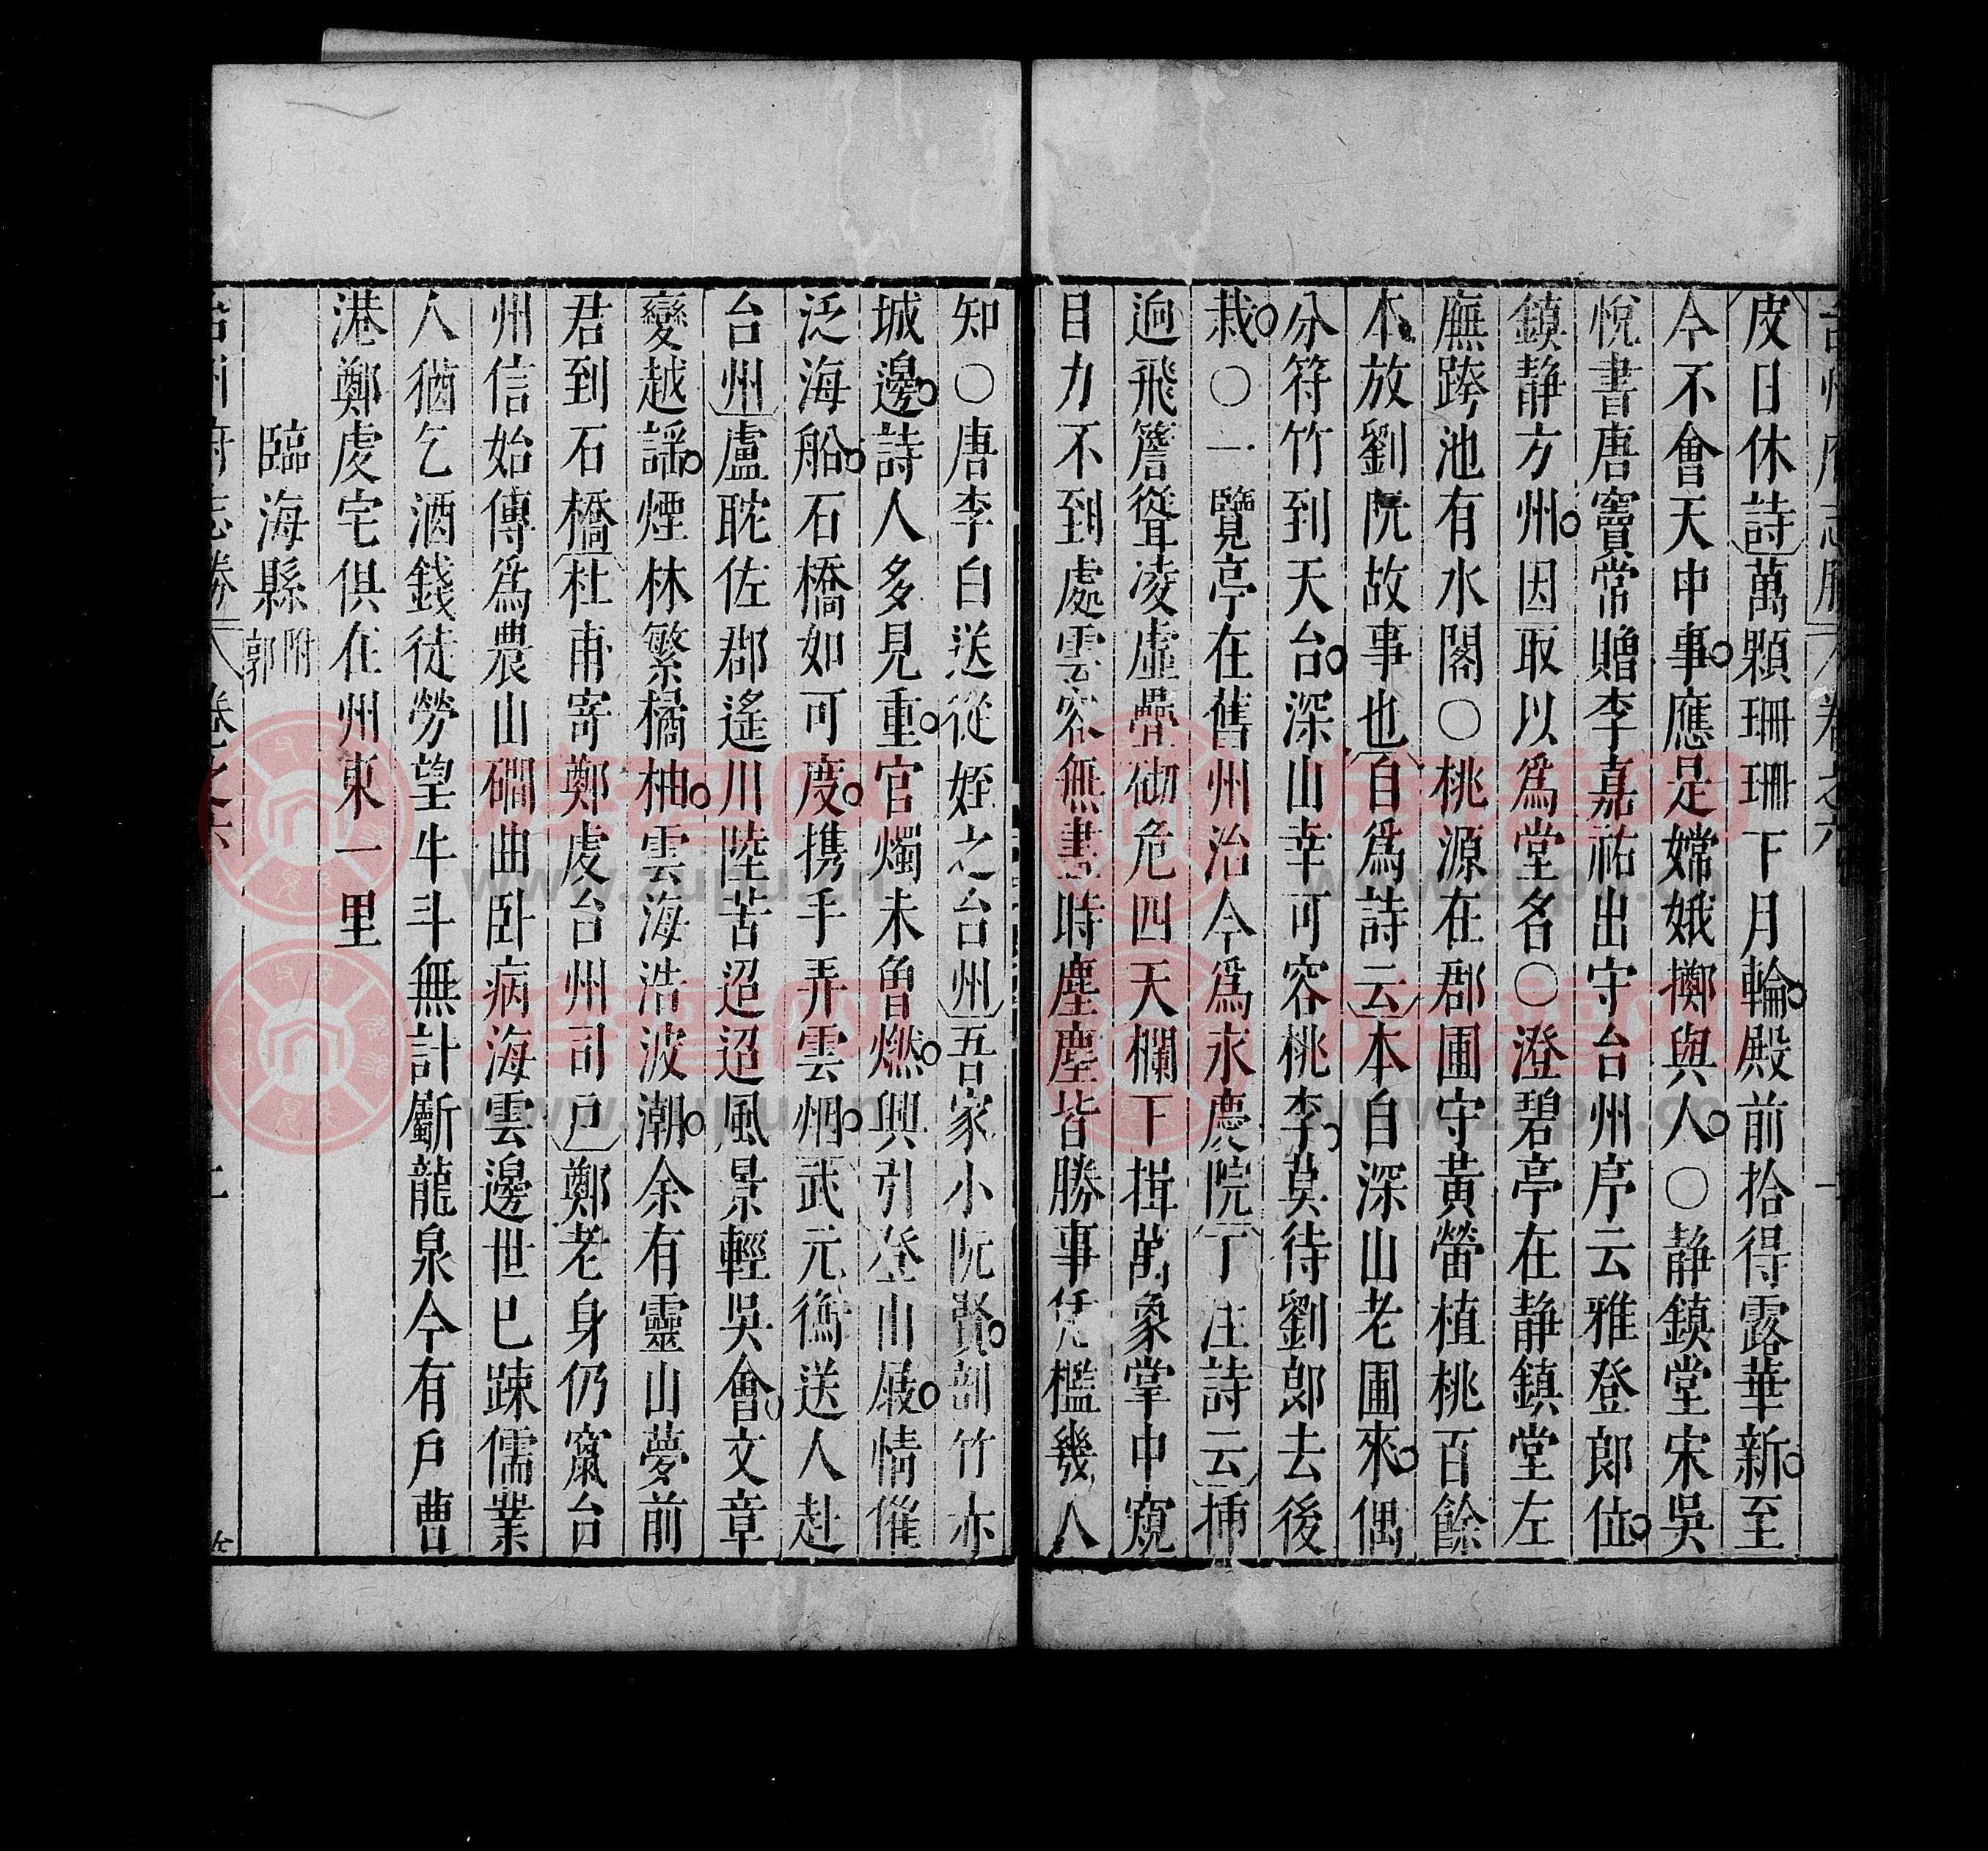 台州府志勝 卷之六
皮日休詩萬顆珊珊下月輪殿前拾得露華新至
今不會天中事應是嫦娥擲與人○靜鎮堂宋吳
悅書唐竇常贈李嘉祐出守台州序云雅登郎位
鎮靜方州因取以爲堂名○澄碧亭在靜鎮堂左
廡跨池有水閣○桃源在郡圃守黃䓨植桃百餘
本放劉阮故事也自爲詩云本自深山老圃來偶
分符竹到天台深山幸可容桃李莫待劉郎去後
栽○一覽亭在舊州治今爲永慶院丁注詩云揷
逈飛簷聳凌虛疊砌危四天欄下揖萬象掌中窺
目力不到處雲容無盡時塵塵皆勝事凭檻幾人
知○唐李白送從姪之台州吾家小阮賢剖竹赤
城邊詩人多見重官燭未曾燃興引登山屐情催
泛海船石橋如可度携手弄雲烟武元衡送人赴
台州盧耽佐郡遙川陸苦迢迢風景輕吳會文章
變越謡煙林繁橘柚雲海浩波潮余有靈山夢前
君到石橋杜甫寄鄭虔台州司戶鄭老身仍竄台
州信始傳爲農山磵曲卧病海雲邊世已踈儒業
人猶乞酒錢徒勞望牛斗無計斸龍泉今有戶曹
港鄭虔宅俱在州東一里
臨海縣附郭
台州府志勝 卷之六
族譜网
www.zupu.cn
族譜网
www.zupu.cn
族譜网
www.zupu.cn
族譜网
www.zupu.cn